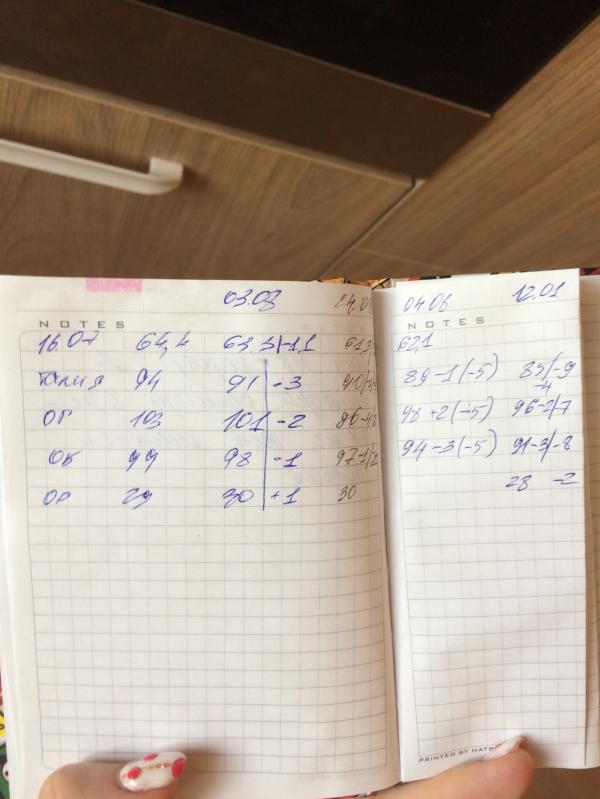 03.08 24.08
NOTES
16.07 64,4 63.3 -1,1 61,3
талия 94 91 -3 90
ОГ 103 101 -2 96-4
ОБ 99 98 -1 97-1/-2
ОР 29 30 +1 30
04.06 12.01
NOTES
62,1
89-1(-5) 85/-9
-4
98+2(-5) 96-2/7
94-3(-5) 91-3/-8
28 -2
PRINTED BY HATB